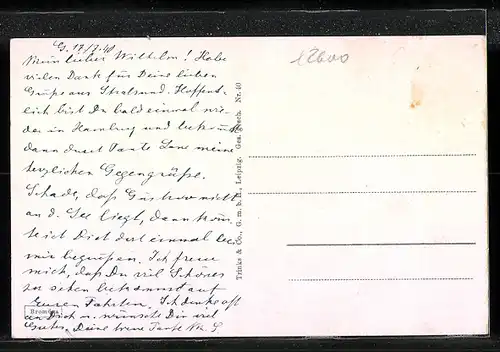 G. 17/7.40
Mein lieber Wilhelm! Habe
vielen Dank für Deine lieben
Grüße aus Stralsund. Hoffent-
lich bist Du bald einmal wie-
der in Hamburg und bekommst
dann durch Tante Lene meine
herzlichen Gegengrüße.
Schade, daß Güstrow nicht
an d. See liegt, dann könn-
te ich Dich dort einmal bei
mir begrüßen. Ich freue
mich, daß Du viel Schönes
zu sehen bekommst auf
Euren Fahrten. Ich denke oft
an Dich u. wünsche Dir viel
Gutes. Deine treue Tante M. G.
12600
Trinks & Co., G. m. b. H., Leipzig. Ges. gesch. Nr. 40
Bromüra